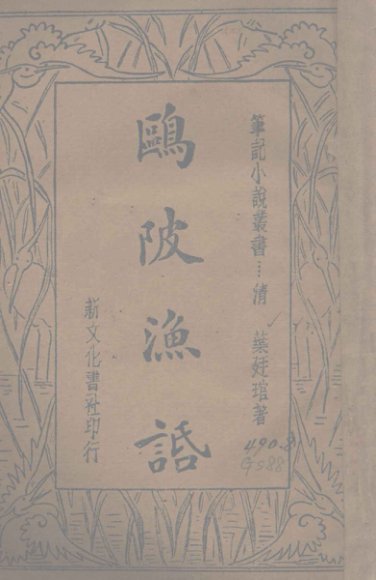 筆記小說叢書…清 葉廷琯著
490.8
Gs88
鷗陂漁䛡
新文化書社印行